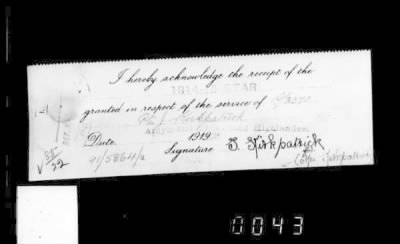 I hereby acknowledge the receipt of the
1914-15 STAR
granted in respect of the service of
Pte J. Kirkpatrick
Date 1919
Signature S. Kirkpatrick
91/5864/2
Kirkpatrick
35/22
0043